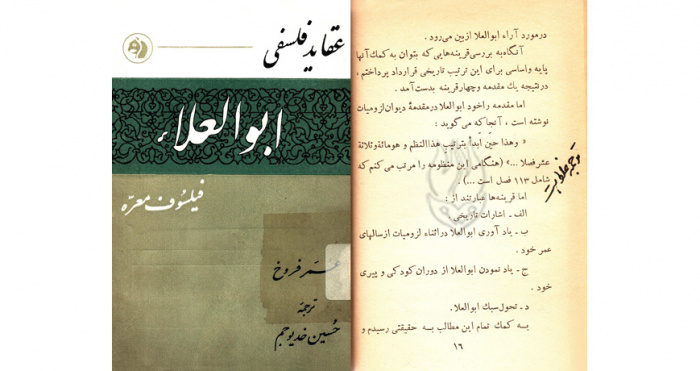 عقاید فلسفی
ابوالعلاء
فیلسوف معرّه
عمر فروخ
ترجمهٔ
حسین خدیوجم
درمورد آراء ابوالعلا ازبین می‌رود .
آنگاه به بررسی قرینه‌هایی که بتوان به کمك آنها
پایه واساسی برای این ترتیب تاریخی قرارداد پرداختم ،
درنتیجه یك مقدمه وچهارقرینه بدست‌آمد .
اما مقدمه راخود ابوالعلا درمقدمهٔ دیوان لزومیات
نوشته است ، آنجا که می‌گوید :
« وهذا حین أبدأ بترتیب هذا النظم و هومائة وثلاثة
عشرفصلا ...» (هنگامی این منظومه را مرتب می کنم که
شامل ۱۱۳ فصل است ...)
اما قرینه‌ها عبارتند از :
الف - اشارات تاریخی .
ب - یاد آوری ابوالعلا دراثناء لزومیات ازسالهای
عمر خود .
ج - یاد نمودن ابوالعلا از دوران کودکی و پیری
خود .
د - تحول سبك ابوالعلا.
بــه کمك تمام این مطالب بــه حقیقتی رسیدم و
۱۶